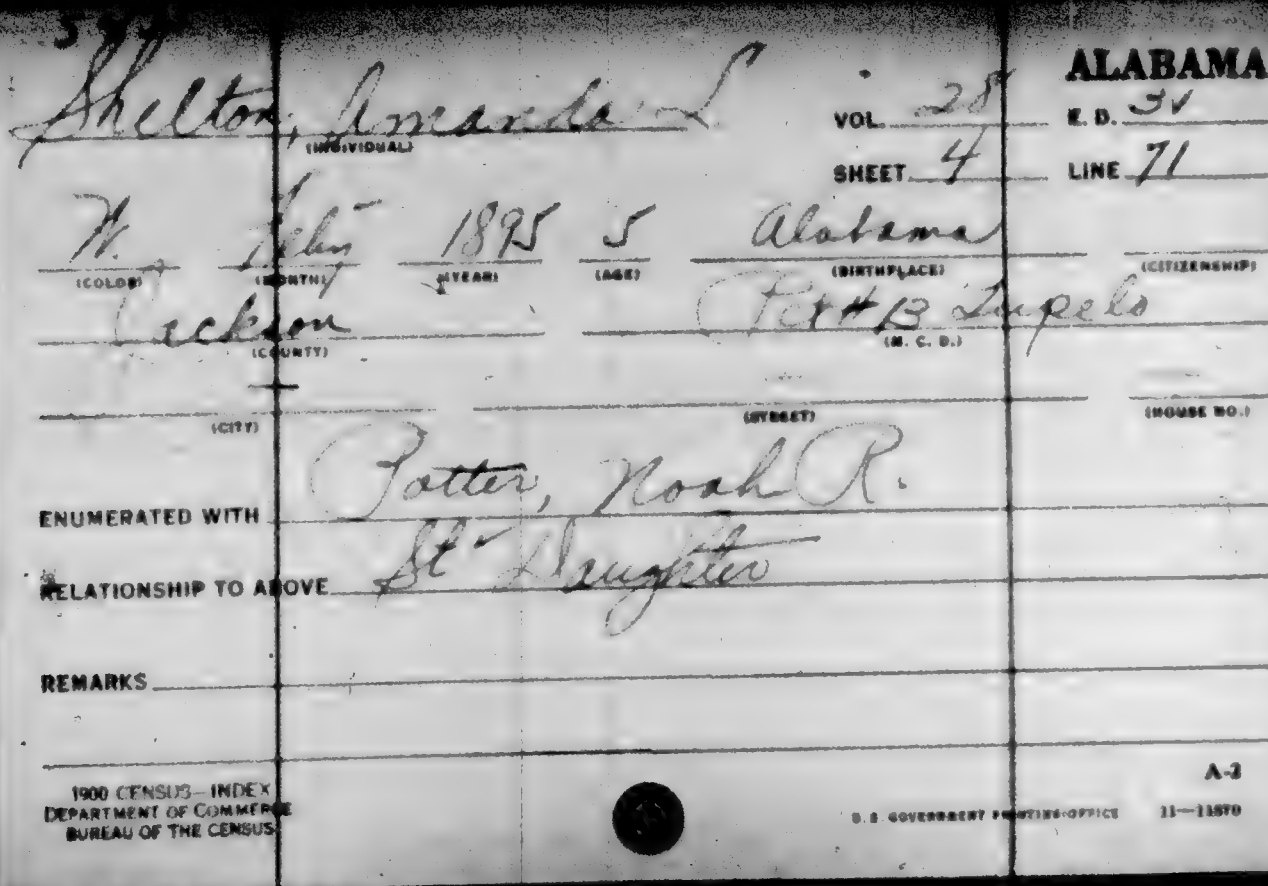 ALABAMA
Shelton, Amanda L
(INDIVIDUAL)
VOL. 28 E. D.
SHEET 4 LINE 71
W. 1895 5 Alabama
(COLOR) (MONTH) (YEAR) (AGE) (BIRTHPLACE) (CITIZENSHIP)
Jackson Pct # 13 Tupelo
(COUNTY) (M. C. D.)
(CITY) (STREET) (HOUSE NO.)
ENUMERATED WITH Potter, Noah R.
RELATIONSHIP TO ABOVE St Daughter
REMARKS
A-2
1900 CENSUS—INDEX
DEPARTMENT OF COMMERCE
BUREAU OF THE CENSUS
U. S. GOVERNMENT PRINTING OFFICE 11—11870